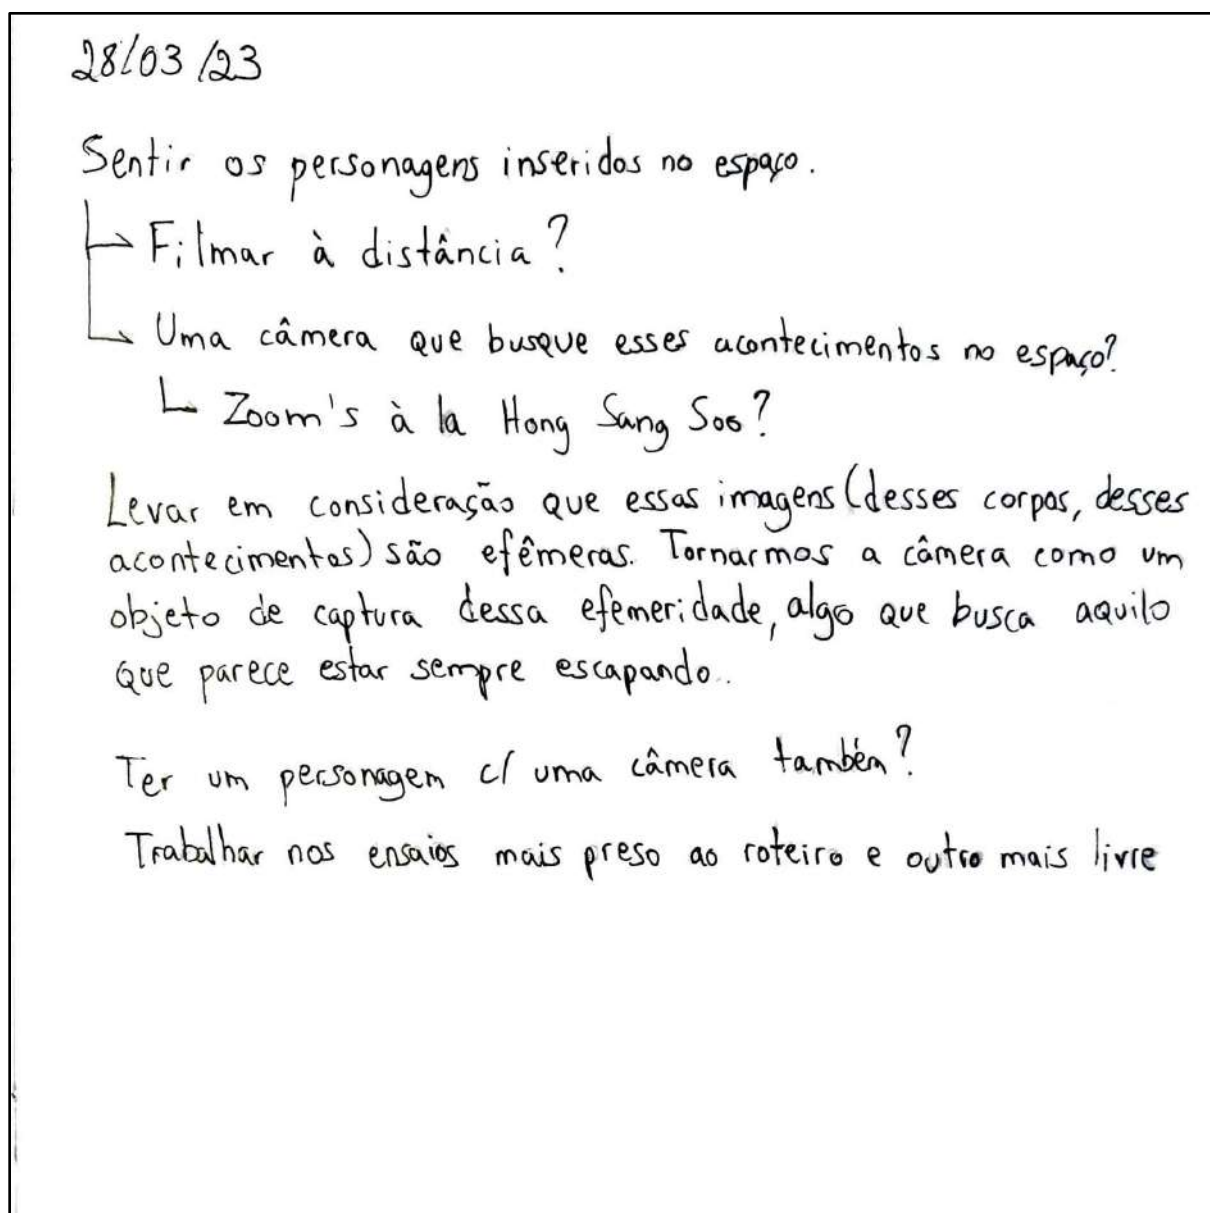 28/03/23
Sentir os personagens inseridos no espaço.
Filmar à distância?
Uma câmera que busque esses acontecimentos no espaço?
Zoom's à la Hong Sang Soo?
Levar em consideração que essas imagens (desses corpos, desses
acontecimentos) são efêmeras. Tornarmos a câmera como um
objeto de captura dessa efemeridade, algo que busca aquilo
que parece estar sempre escapando..
Ter um personagem c/ uma câmera também?
Trabalhar nos ensaios mais preso ao roteiro e outro mais livre